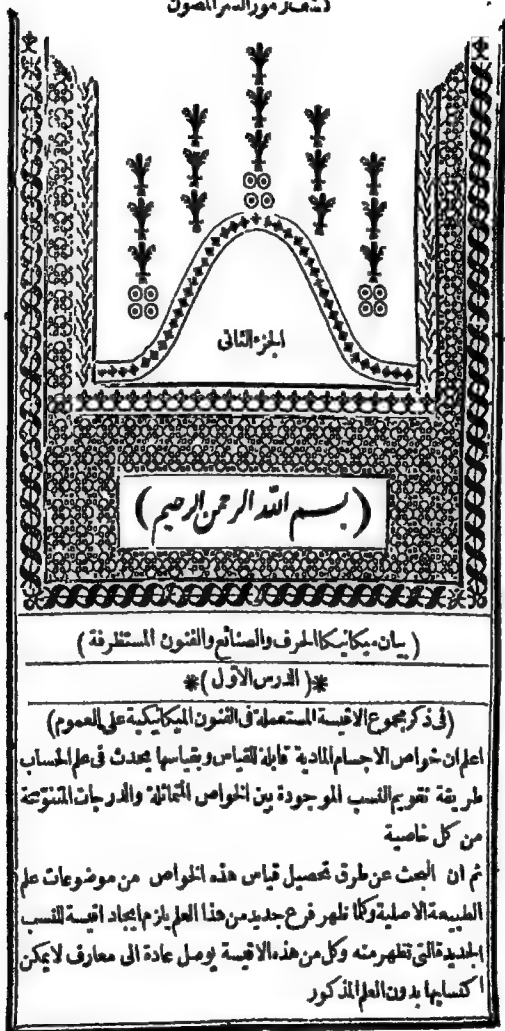 الجزء الثانى
(بسم الله الرحمن الرحيم)
(بيان ميكانيكا الحرف والصنائع والفنون المستظرفة)
*(الدرس الاول)*
(فى ذكر مجموع الاقيسة المستعملة فى الفنون الميكانيكية على العموم)
اعلم ان خواص الاجسام المادية قابلة للقياس وبقياسها يحدث فى علم الحساب
طريقة تقويم النسب الموجودة بين الخواص المتماثلة والدرجات المتنوعة
من كل خاصية
ثم ان البحث عن طرق تحصيل قياس هذه الخواص من موضوعات علم
الطبيعة الاصلية وكلما ظهر فرع جديد من هذا العلم يلزم ايجاد اقيسة للنسب
الجديدة التى تظهر منه وكل من هذه الاقيسة يوصل عادة الى معارف لا يمكن
اكتسابها بدون العلم المذكور